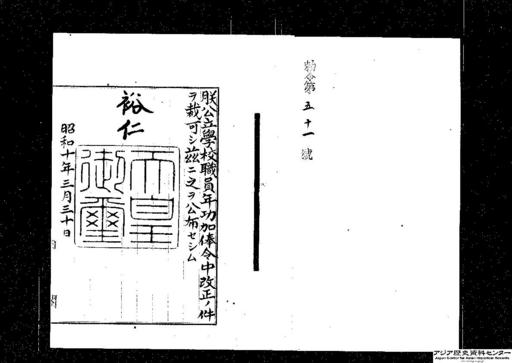 勅令第五十一號
朕公立學校職員年功加俸令中改正ノ件
ヲ裁可シ茲ニ之ヲ公布セシム
裕仁
天皇
御璽
昭和十年三月三十日
内閣
アジア歴史資料センター
Japan Center for Asian Historical Records